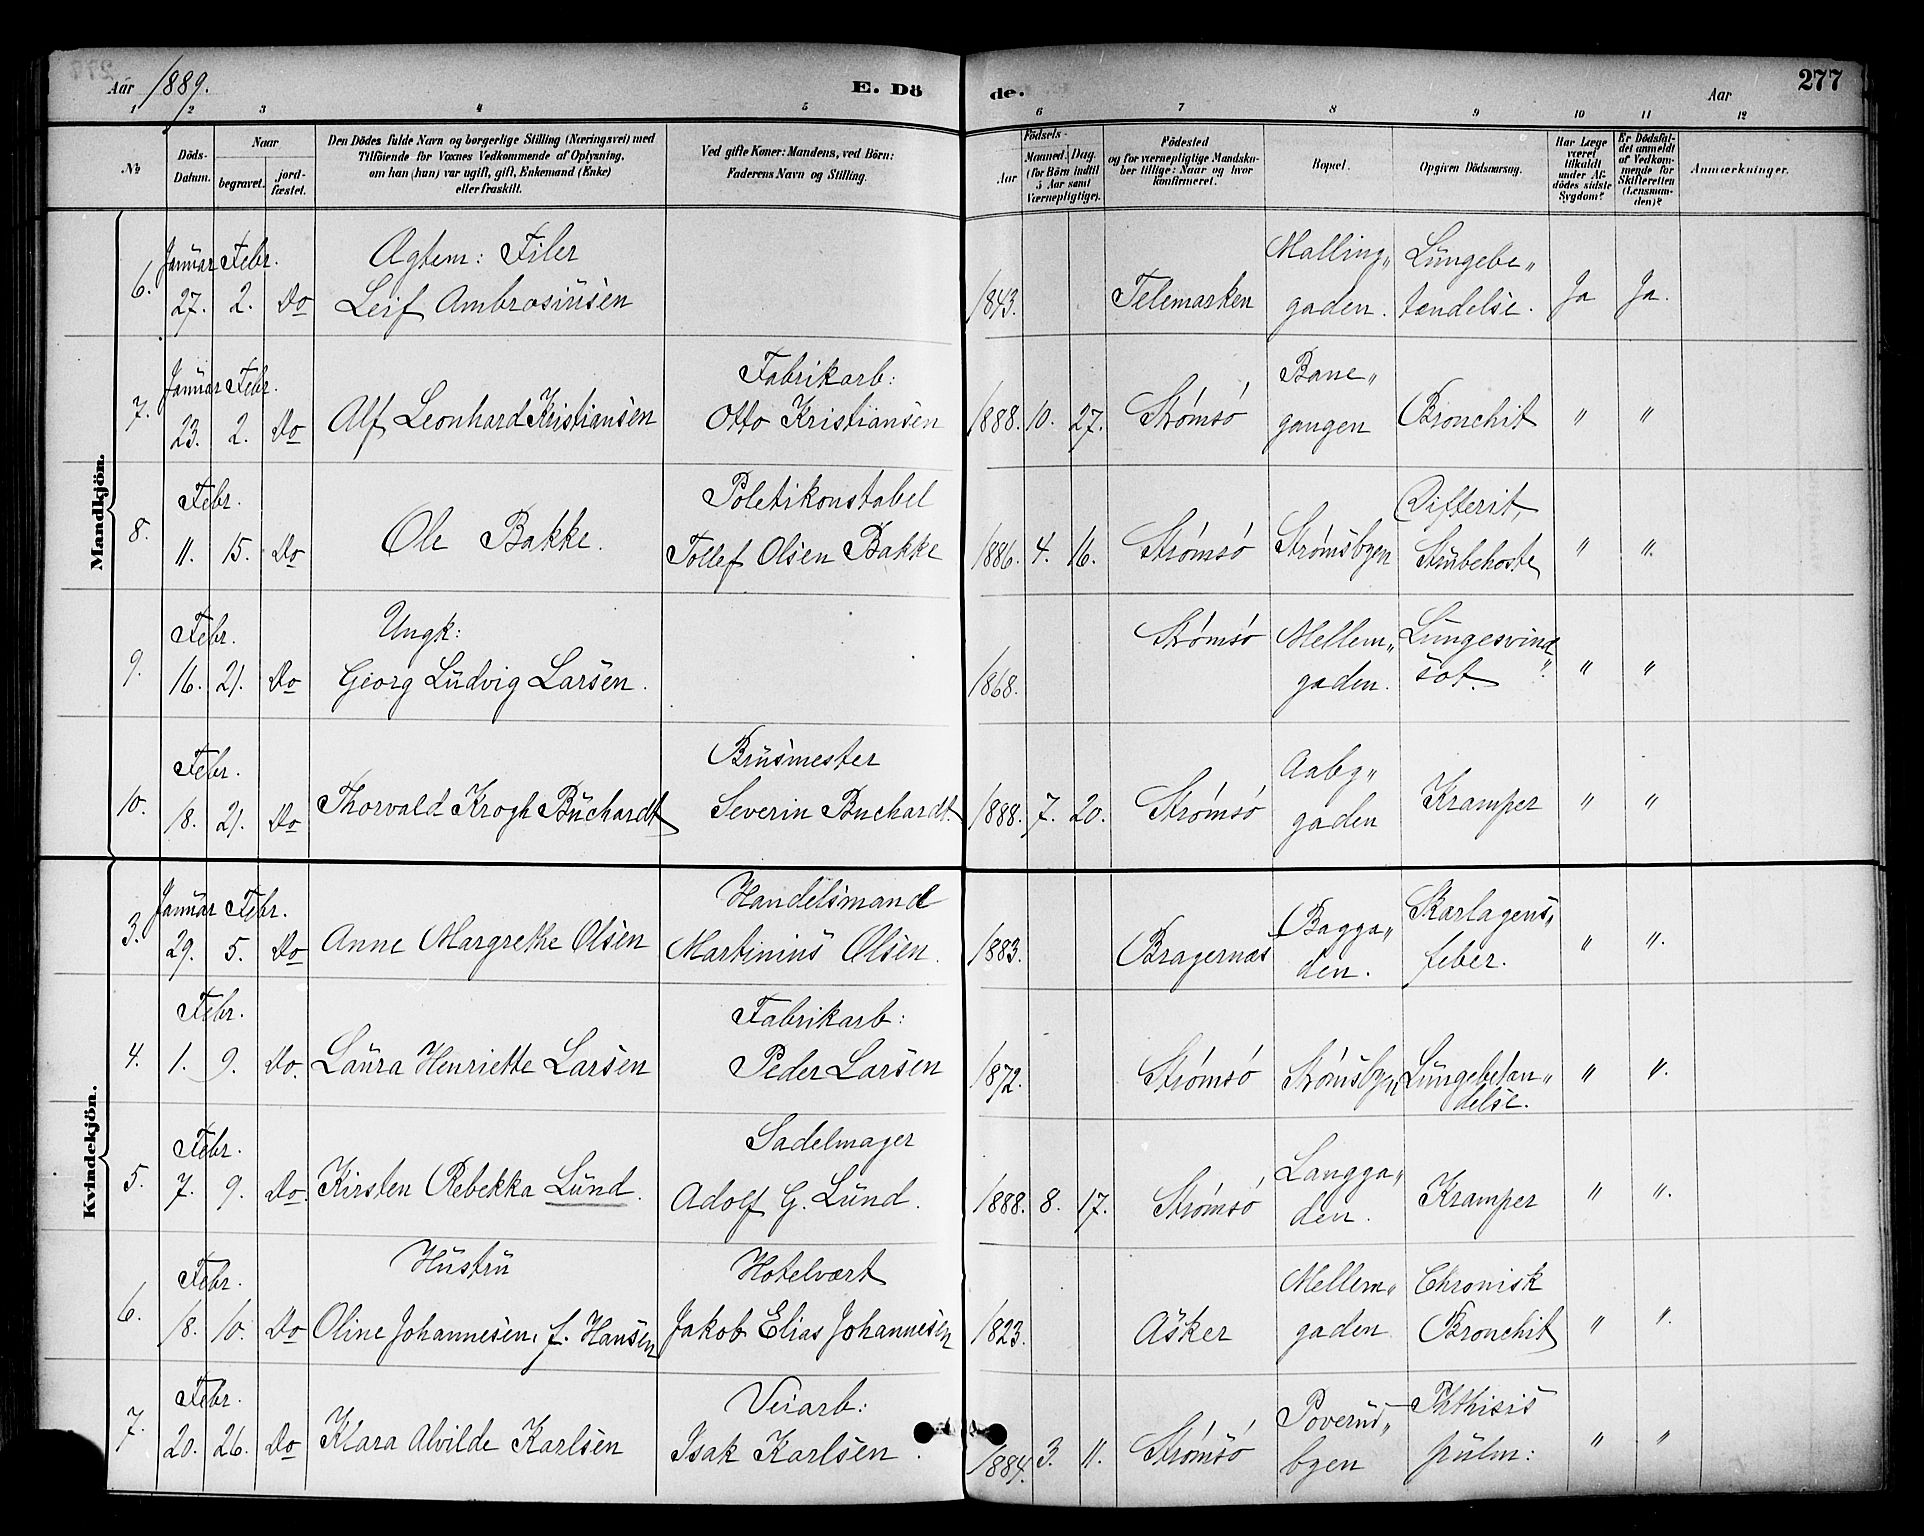 Aar 1889.
E. Döde.
Aar
277
1 2 3 4 5 6 7 8 9 10 11 12
No.
Döds-Datum.
Naar
begravet.
jord-fæstet.
Den Dödes fulde Navn og borgerlige Stilling (Næringsvei) med
Tilföiende for Voxnes Vedkommende af Oplysning,
om han (hun) var ugift, gift, Enkemand (Enke)
eller fraskilt.
Ved gifte Koner: Mandens, ved Börn:
Faderens Navn og Stilling.
Födsels-
Aar
Maaned. Dag.
(for Börn indtil
5 Aar samt
Værnepligtige).
Födested
og for værnepligtige Mandska-
ber tillige: Naar og hvor
konfirmeret.
Bopæl.
Opgiven Dödsaarsag.
Har Læge
været
tilkaldt
under Af-
dödes sidste
Sygdom?
Er Dödsfal-
det anmeldt
af Vedkom-
mende for
Skifteretten
(Lensman-
den)?
Anmærkninger.
Mandkjön.
6. Januar 27. Febr. 2. Do Agtem: Filer
Leif Ambrosiusen 1843. Telemarken Malling„
gaden. Lungebe„
tændelse. Ja Ja.
7. Januar 23. Febr. 2. Do Alf Leonhard Kristiansen Fabrikarb:
Otto Kristiansen 1888. 10. 27. Strømsø Bane„
gangen Bronchit " "
8. Febr. 11. 15. Do Ole Bakke. Poletikonstabel
Tollef Olsen Bakke 1886. 4. 16. Strømsø Strømsbyen Difterit,
Strubehoste " ".
9. Febr. 16. 21. Do Ungk:
Georg Ludvig Larsen. 1868. Strømsø Mellem„
gaden. Lungesvind„
sot. " "
10. Febr. 18. 21. Do Thorvald Krogh Buchardt Brusmester
Severin Buchardt. 1888. 7. 20. Strømsø Aabg„
gaden Kramper " "
Kvindekjön.
3. Januar 29. Febr. 5. Do Anne Margrethe Olsen Handelsmand
Martinius Olsen. 1883. Bragernæs Bagga„
den. Skarlagens„
feber. " ".
4. Febr. 1. 9. Do. Laura Henriette Larsen Fabrikarb:
Peder Larsen 1872. Strømsø Strømsbyen Lungebetæn„
delse. " ".
5. Febr. 7. 9. Do. Kirsten Rebekka Lund. Sadelmager
Adolf G. Lund. 1888. 8. 17. Strømsø Langga„
den. Kramper " ".
6. Febr. 18. 10. Do Hustru
Oline Johannesen, f. Hansen Hotelvært
Jakob Elias Johannesen 1823. Asker Mellem„
gaden Chronisk
Bronchit " ".
7. Febr. 20. 26. Do Klara Alvilde Karlsen Veiarb:
Isak Karlsen. 1884. 3. 11. Strømsø Poverud„
byen Phthisis
pulm: " "